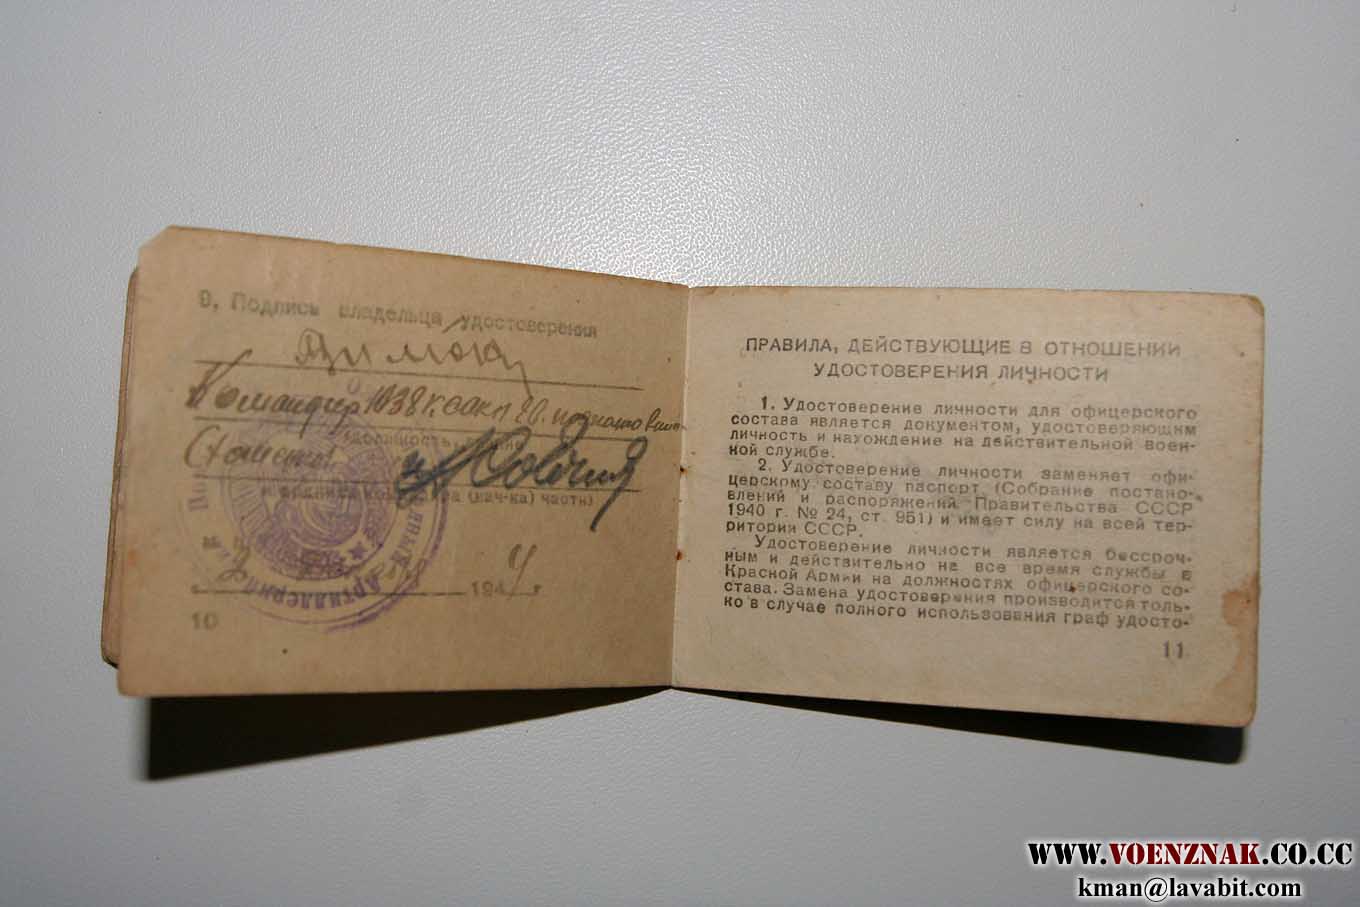 9. Подпись владельца удостоверения
Командир 1038
(должность, звание
и подпись командира (нач-ка) части)
194 4 г.
10
Артиллерийский
ПРАВИЛА, ДЕЙСТВУЮЩИЕ В ОТНОШЕНИИ
УДОСТОВЕРЕНИЯ ЛИЧНОСТИ
1. Удостоверение личности для офицерского
состава является документом, удостоверяющим
личность и нахождение на действительной воен-
ной службе.
2. Удостоверение личности заменяет офи-
церскому составу паспорт (Собрание постано-
влений и распоряжений Правительства СССР
1940 г. № 24, ст. 951) и имеет силу на всей тер-
ритории СССР.
Удостоверение личности является бессроч-
ным и действительно на все время службы в
Красной Армии на должностях офицерского со-
става. Замена удостоверения производится толь-
ко в случае полного использования граф удосто-
11
WWW.VOENZNAK.CO.CC
kman@lavabit.com